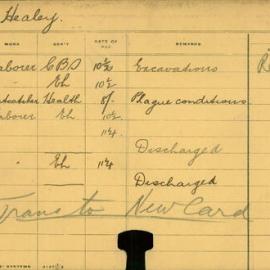 Healey.
WORK DEP'T RATE OF PAY REMARKS
aborer C.B.S 10½ Excavations
" Eh 10½
atcatcher Health 8/- Plague conditions
aborer Eh 10½
11¼
Discharged
" Eh 11¼
Discharged
Trans to New Card